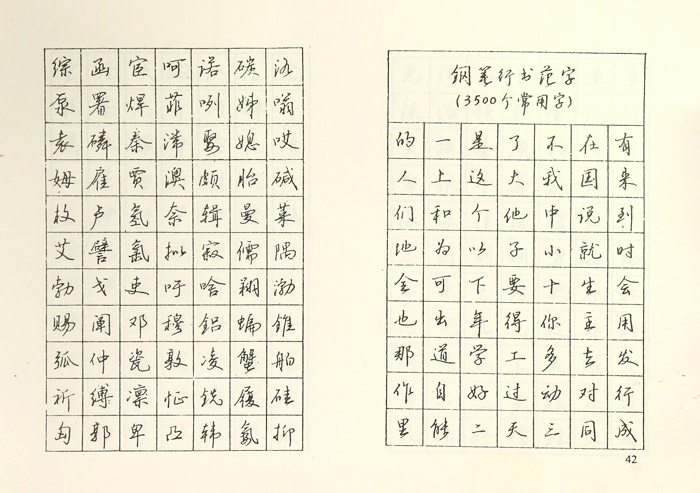 综函宦呵诺碳洛
泵署焊菲咧姊嗡
袁磷秦滞娶媳哎
姆雇贾澳颇胎碱
枚卢氢奈辑曼莱
艾譬氯批寂儒隅
勃戈吏吁啥翔渤
赐阐邓穆铝蝙锥
弧仲瓷敦凌蟹船
祈缚凛怔铣履硅
匈郭卑亞韩氨抑
钢笔行书范字
(3500个常用字)
的一是了不在有
人上这大我国来
们和个他中说到
地为以子小就时
全可下要十生会
也出年得你主用
那道学工多去发
作自好过动对行
里能二天三同成
42